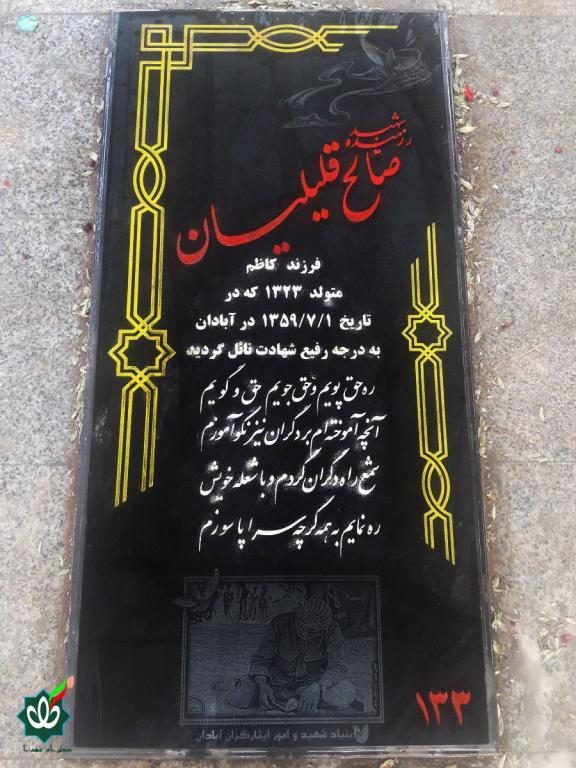 رزمنده شهید
صالح قلیلیان
فرزند کاظم
متولد ۱۳۲۳ که در
تاریخ ۱۳۵۹/۷/۱ در آبادان
به درجه رفیع شهادت نائل گردید
ره حق پویم و حق جویم حق و گویم
آنچه آموخته‌ام بر دگران نیز نکو آموزم
شمع راه دگران گردم و با شعله خویش
ره نمایم به همه گرچه سراپا سوزم
۱۳۳
بنیاد شهید و امور ایثارگران آبادان